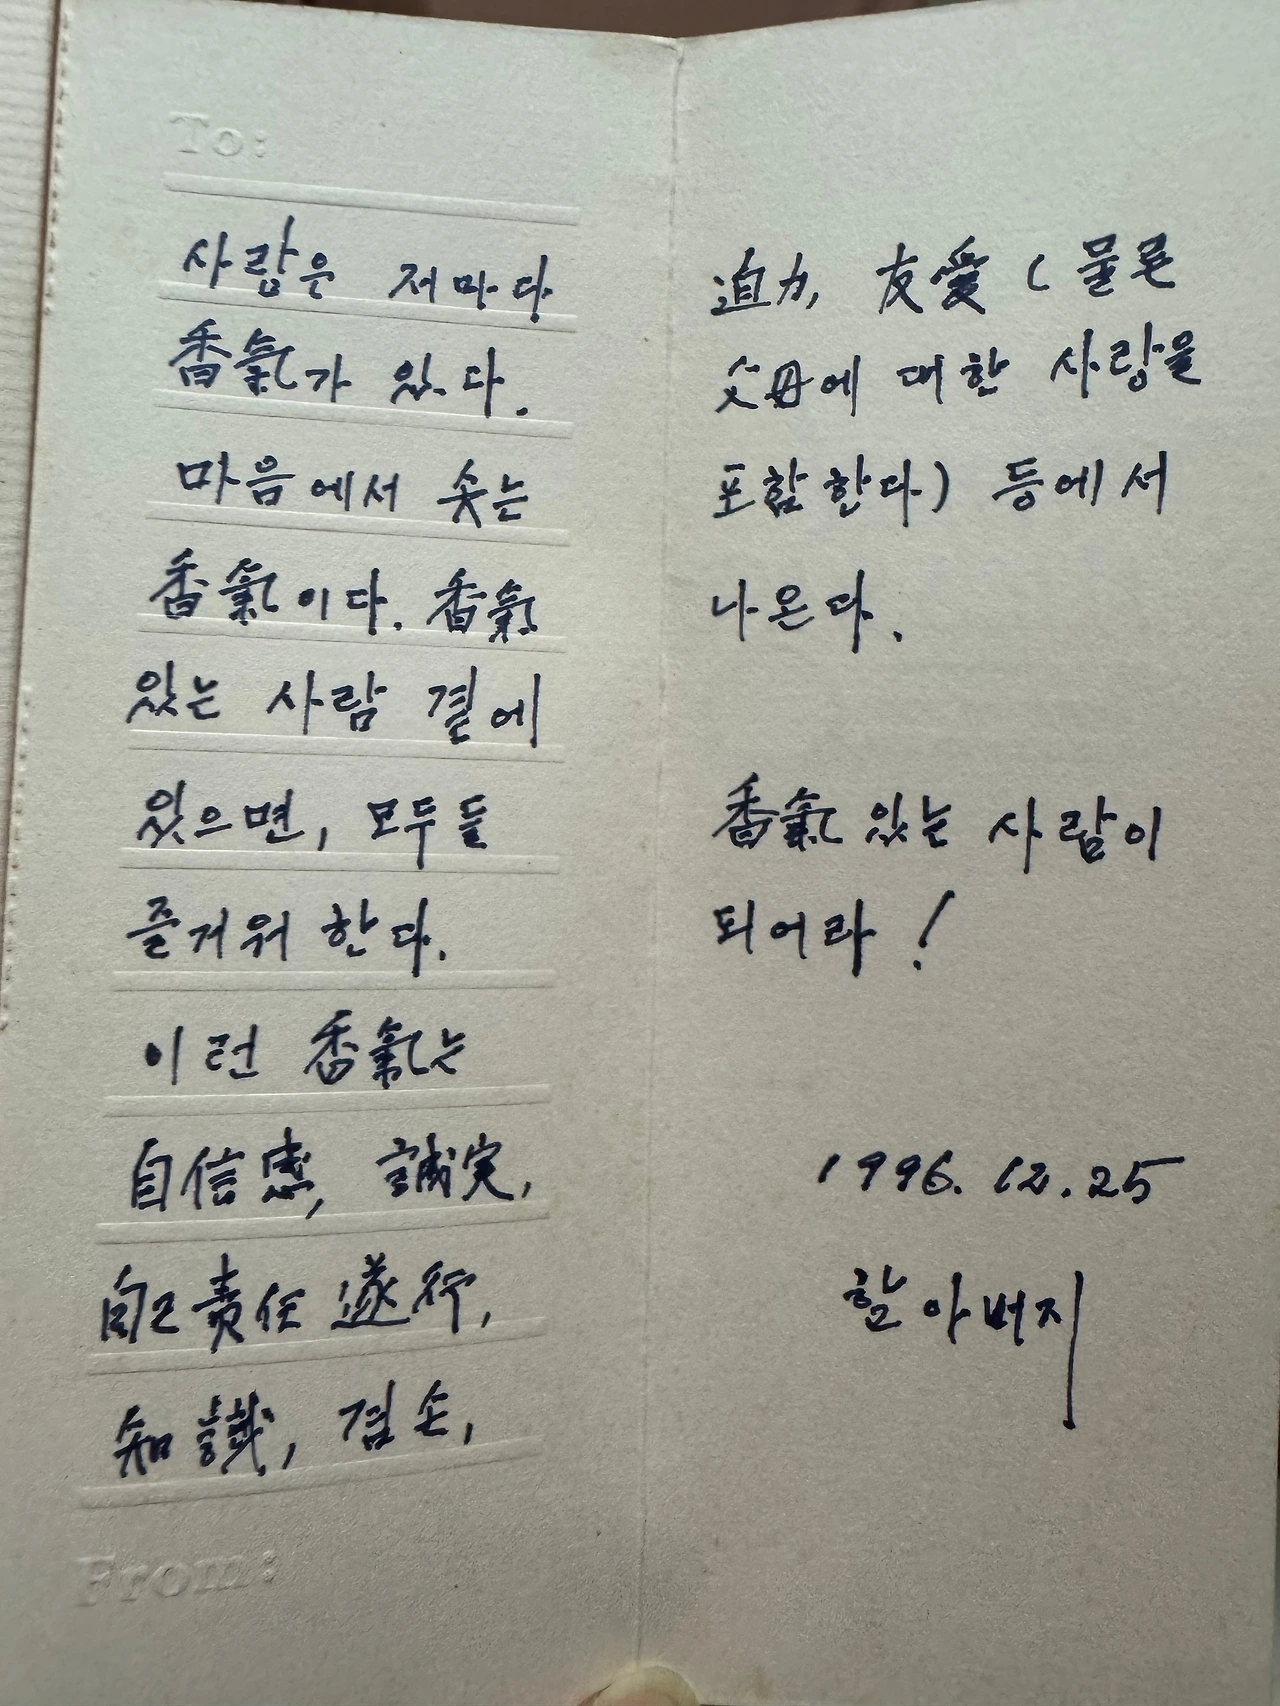 To:
사람은 저마다
香氣가 있다.
마음에서 솟는
香氣이다. 香氣
있는 사람 곁에
있으면, 모두들
즐거워 한다.
이런 香氣는
自信感, 誠実,
自己責任 遂行,
知識, 겸손,
From:
迫力, 友愛 (물론
父母에 대한 사랑을
포함한다) 등에서
나온다.
香氣 있는 사람이
되어라!
1996. 12. 25
할아버지